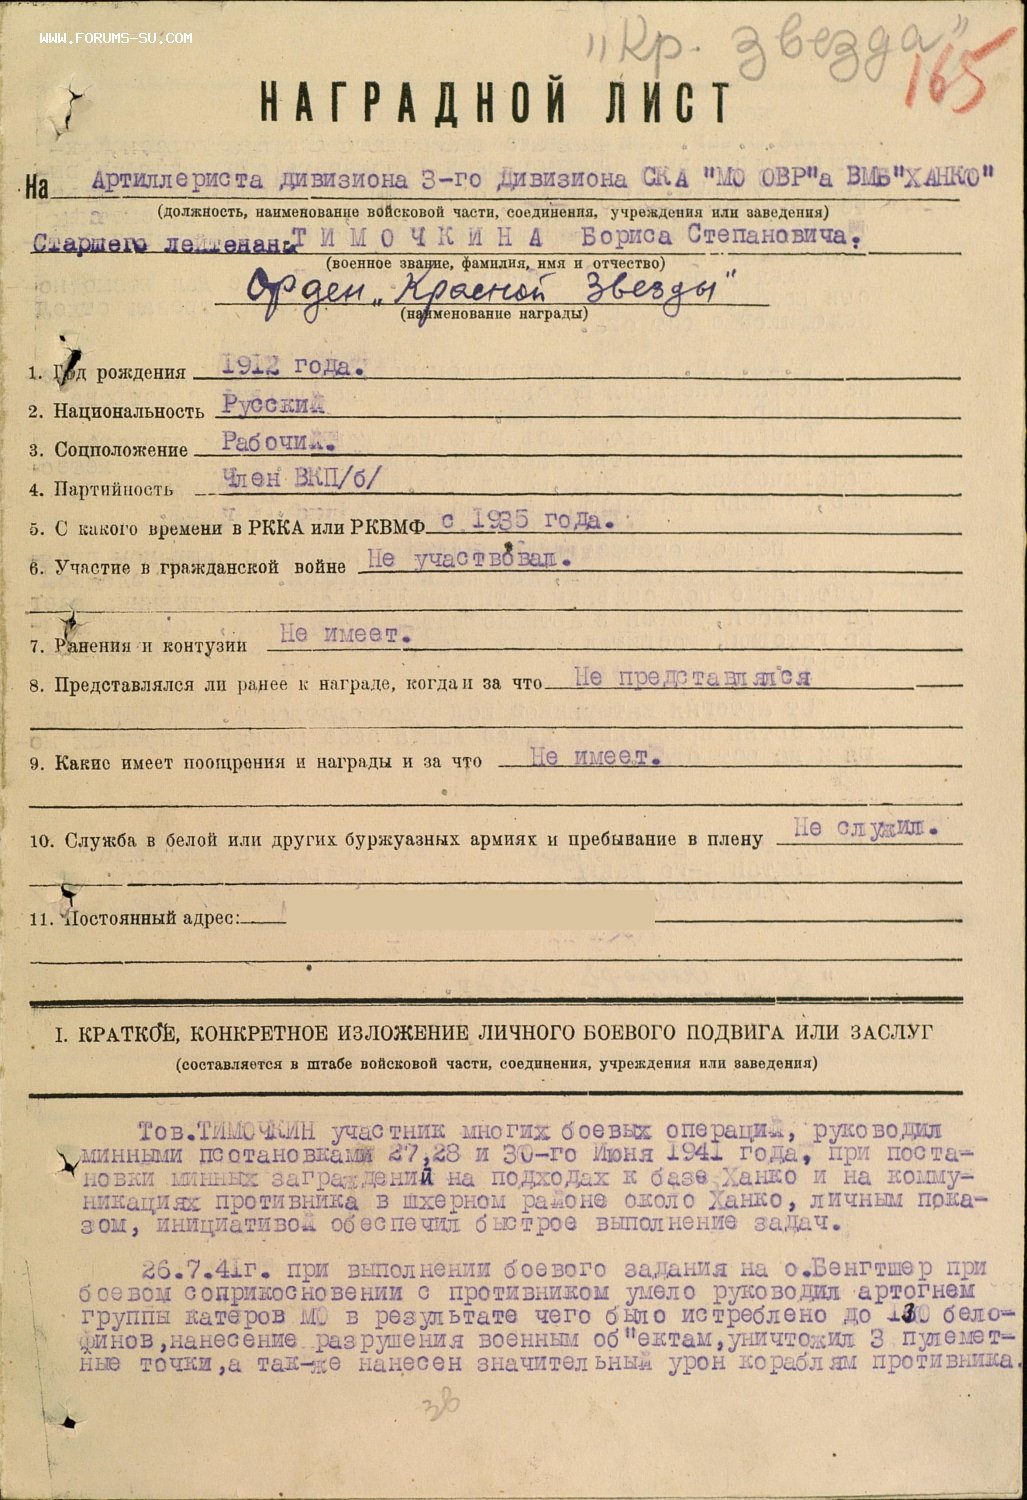 WWW.FORUMS-SU.COM
"Кр. звезда"
165
НАГРАДНОЙ ЛИСТ
На Артиллериста дивизиона 3-го Дивизиона СКА "МО ОВР"а ВМБ"ХАНКО"
(должность, наименование войсковой части, соединения, учреждения или заведения)
Старшего лейтенанта ТИМОЧКИНА Бориса Степановича.
(военное звание, фамилия, имя и отчество)
Орден "Красной Звезды"
(наименование награды)
1. Год рождения 1912 года.
2. Национальность Русский
3. Соцположение Рабочий.
4. Партийность Член ВКП/б/
5. С какого времени в РККА или РКВМФ с 1935 года.
6. Участие в гражданской войне Не участвовал.
7. Ранения и контузии Не имеет.
8. Представлялся ли ранее к награде, когда и за что Не представлялся
9. Какие имеет поощрения и награды и за что Не имеет.
10. Служба в белой или других буржуазных армиях и пребывание в плену Не служил.
11. Постоянный адрес:
I. КРАТКОЕ, КОНКРЕТНОЕ ИЗЛОЖЕНИЕ ЛИЧНОГО БОЕВОГО ПОДВИГА ИЛИ ЗАСЛУГ
(составляется в штабе войсковой части, соединения, учреждения или заведения)
Тов.ТИМОЧКИН участник многих боевых операций, руководил
минными псотановками 27,28 и 30-го Июня 1941 года, при поста-
новки минных заграждений на подходах к базе Ханко и на комму-
никациях противника в шхерном районе около Ханко, личным пока-
зом, инициативой обеспечил быстрое выполнение задач.
26.7.41г. при выполнении боевого задания на о.Бенгтшер при
боевом соприкосновении с противником умело руководил артогнем
группы катеров МО в результате чего было истреблено до 130 бело-
финов,нанесение разрушения военным об"ектам,уничтожил 3 пулемет-
ные точки,а так-же нанесен значительный урон кораблям противника.